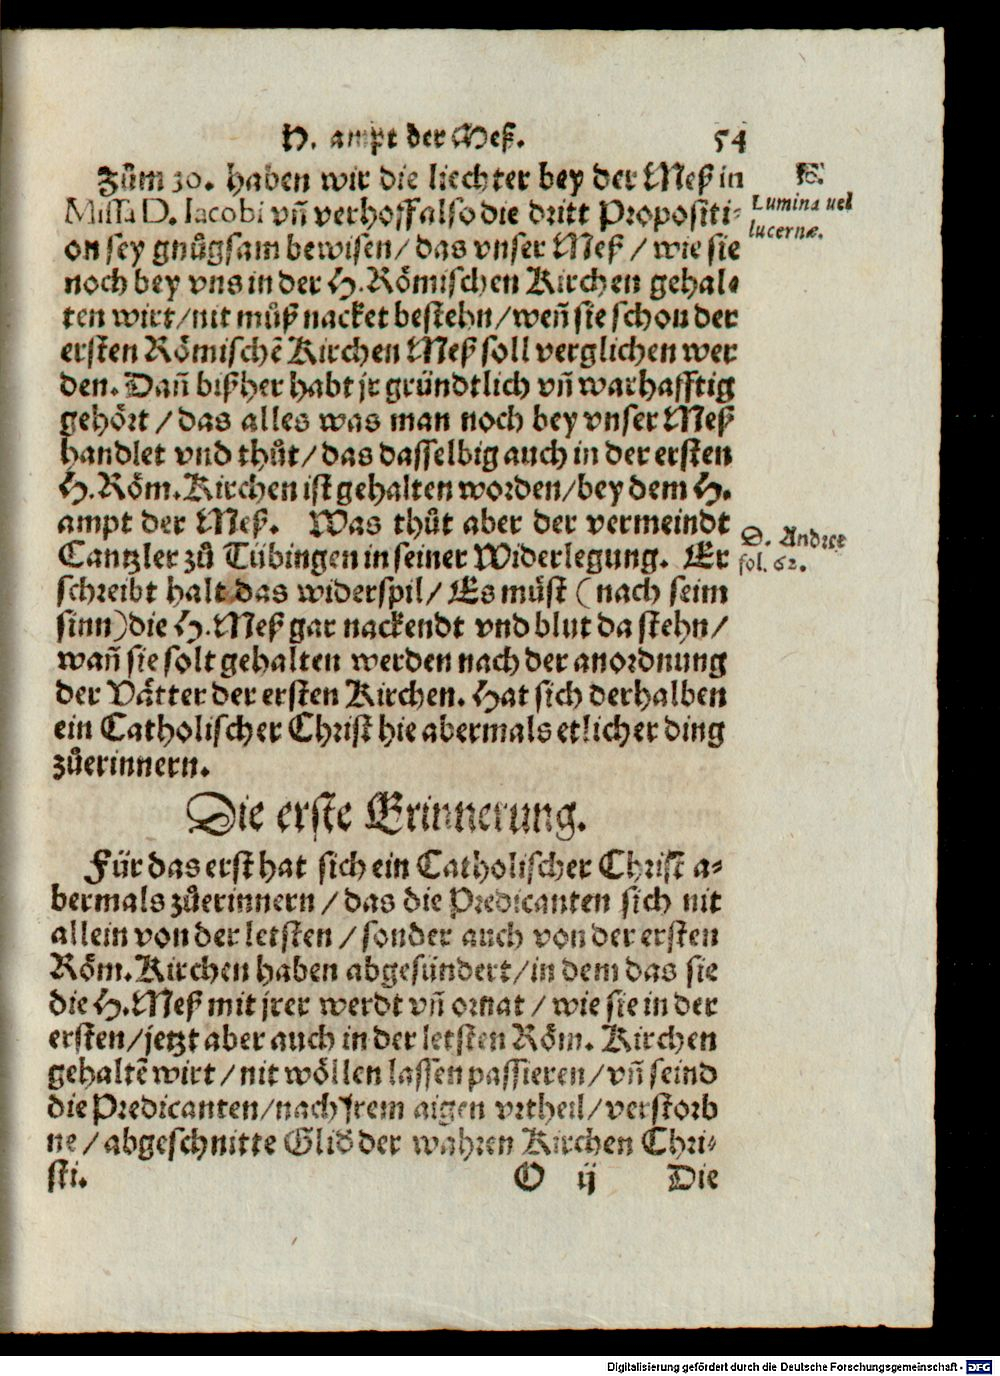 H. ampt der Meß. 54
Zům 30. haben wir die liechter bey der Meß in
Missa D. Iacobi vñ verhoff also die dritt Propositi-
on sey gnůgsam bewisen/ das vnser Meß / wie sie
noch bey vns in der H. Römischen Kirchen gehal-
ten wirt/ nit můß nacket bestehn/ weñ sie schon der
ersten Römischẽ Kirchen Meß soll verglichen wer
den. Dañ bißher habt jr gründtlich vñ warhafftig
gehört / das alles was man noch bey vnser Meß
handlet vnd thůt/ das dasselbig auch in der ersten
H. Röm. Kirchen ist gehalten worden/ bey dem H.
ampt der Meß. Was thůt aber der vermeindt
Cantzler zů Tübingen in seiner Widerlegung. Er
schreibt halt das widerspil/ Es müst (nach seim
sinn) die H. Meß gar nackendt vnd blut da stehn/
wañ sie solt gehalten werden nach der anordnung
der Vätter der ersten Kirchen. Hat sich derhalben
ein Catholischer Christ hie abermals etlicher ding
zůerinnern.
E.
Lumina uel
lucernæ.
D. Andree
fol. 62.
Die erste Erinnerung.
Für das erst hat sich ein Catholischer Christ a-
bermals zůerinnern / das die Predicanten sich nit
allein von der letsten / sonder auch von der ersten
Röm. Kirchen haben abgesündert/ in dem das sie
die H. Meß mit jrer werdt vñ ornat / wie sie in der
ersten/ jetzt aber auch in der letsten Röm. Kirchen
gehaltẽ wirt / nit wöllen lassen passieren/ vñ seind
die Predicanten/ nach jrem aigen vrtheil/ verstorb
ne / abgeschnitte Glid der wahren Kirchen Chri-
sti. O ij Die
Digitalisierung gefördert durch die Deutsche Forschungsgemeinschaft - DFG